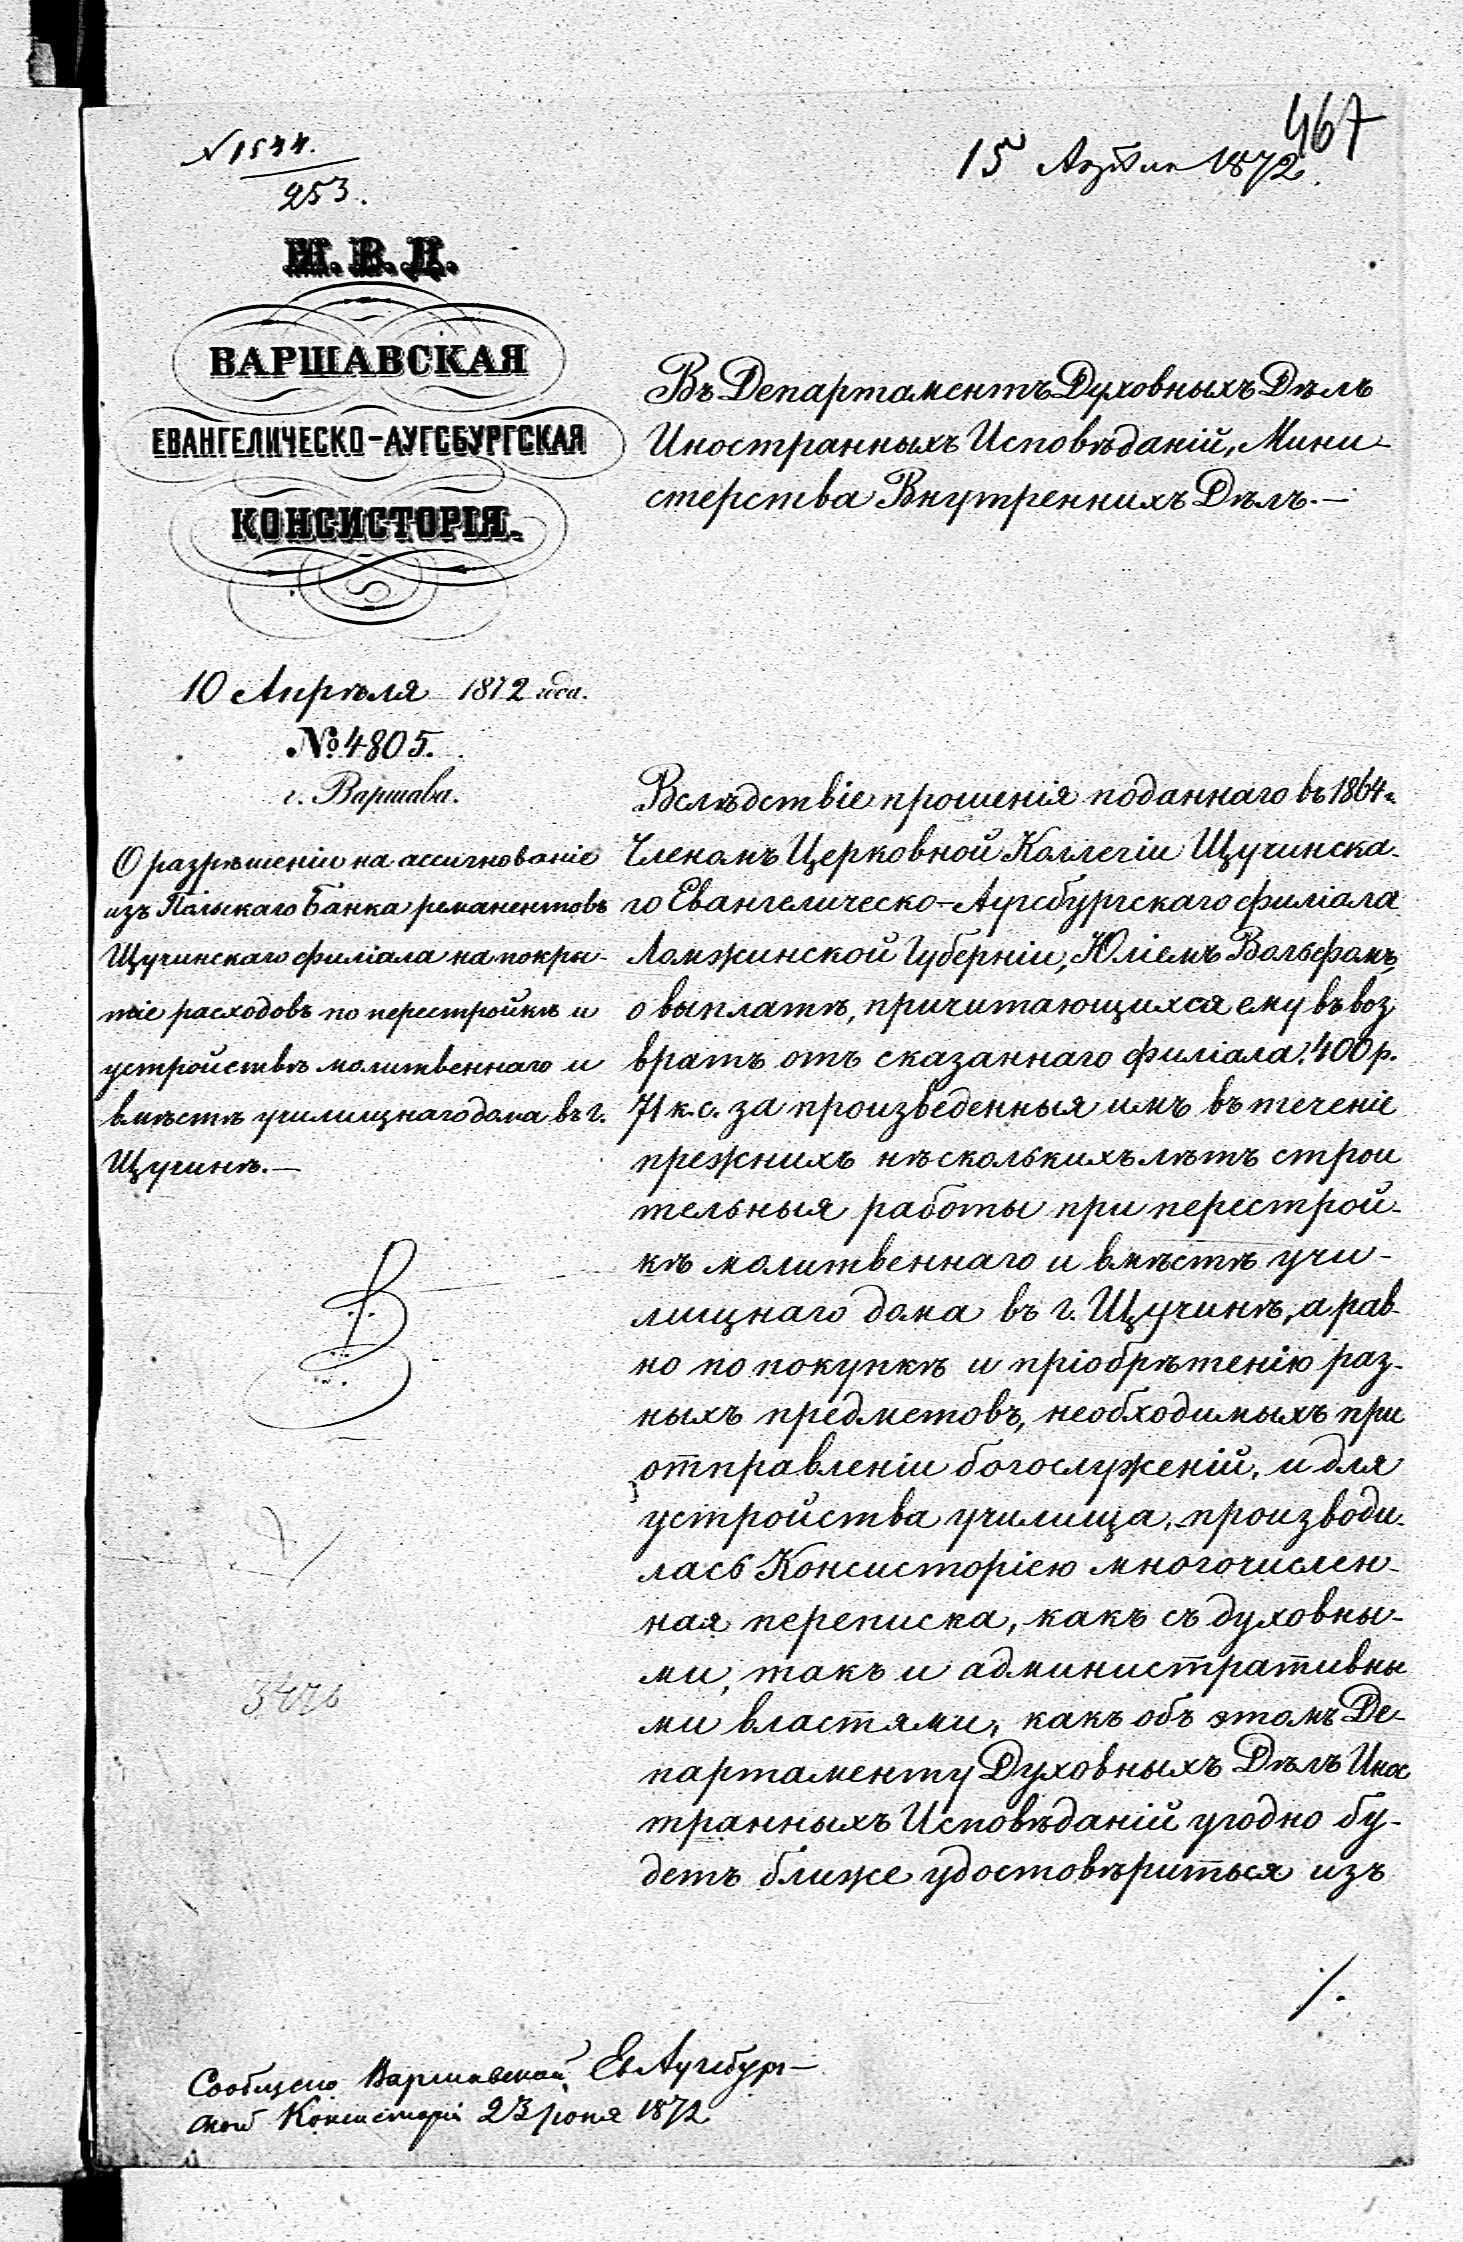 467
15 Апрѣля 1872.
№ 1544.
253.
М. В. Д.
ВАРШАВСКАЯ
ЕВАНГЕЛИЧЕСКО-АУГСБУРГСКАЯ
КОНСИСТОРІЯ.
10 Апрѣля 1872 года.
№ 4805.
г. Варшава.
О разрѣшеніи на ассигнованіе
изъ Польскаго Банка реманентовъ
Щучинскаго филіала на покры-
тіе расходовъ по перестройкѣ и
устройствѣ молитвеннаго и
вмѣстѣ училищнаго дома въ г.
Щучинѣ.—
Въ Департаментъ Духовныхъ Дѣлъ
Иностранныхъ Исповѣданій, Мини-
стерства Внутреннихъ Дѣлъ.—
Вслѣдствіе прошенія поданнаго въ 1864 г.
Членомъ Церковной Коллегіи Щучинска-
го Евангелическо-Аугсбургскаго филіала
Ломжинской Губерніи, Юліемъ Вольфомъ,
о выплатѣ, причитающихся ему въ воз
вратъ отъ сказаннаго филіала, 400 р.
71 к. с. за произведенныя имъ въ теченіе
прежнихъ нѣсколькихъ лѣтъ строи
тельныя работы при перестрой-
кѣ молитвеннаго и вмѣстѣ учи-
лищнаго дома въ г. Щучинѣ, а рав-
но по покупкѣ и пріобрѣтенію раз-
ныхъ предметовъ, необходимыхъ при
отправленіи богослуженій, и для
устройства училища, производи-
лась Консисторіею многочислен-
ная переписка, какъ съ духовны-
ми, такъ и административны
ми властями, какъ объ этомъ Де-
партаменту Духовныхъ Дѣлъ Инос
транныхъ Исповѣданій угодно бу-
детъ ближе удостовѣриться изъ
/.
Сообщено Варшавской Ев Аугсбург-
ской Консисторіи 23 іюня 1872